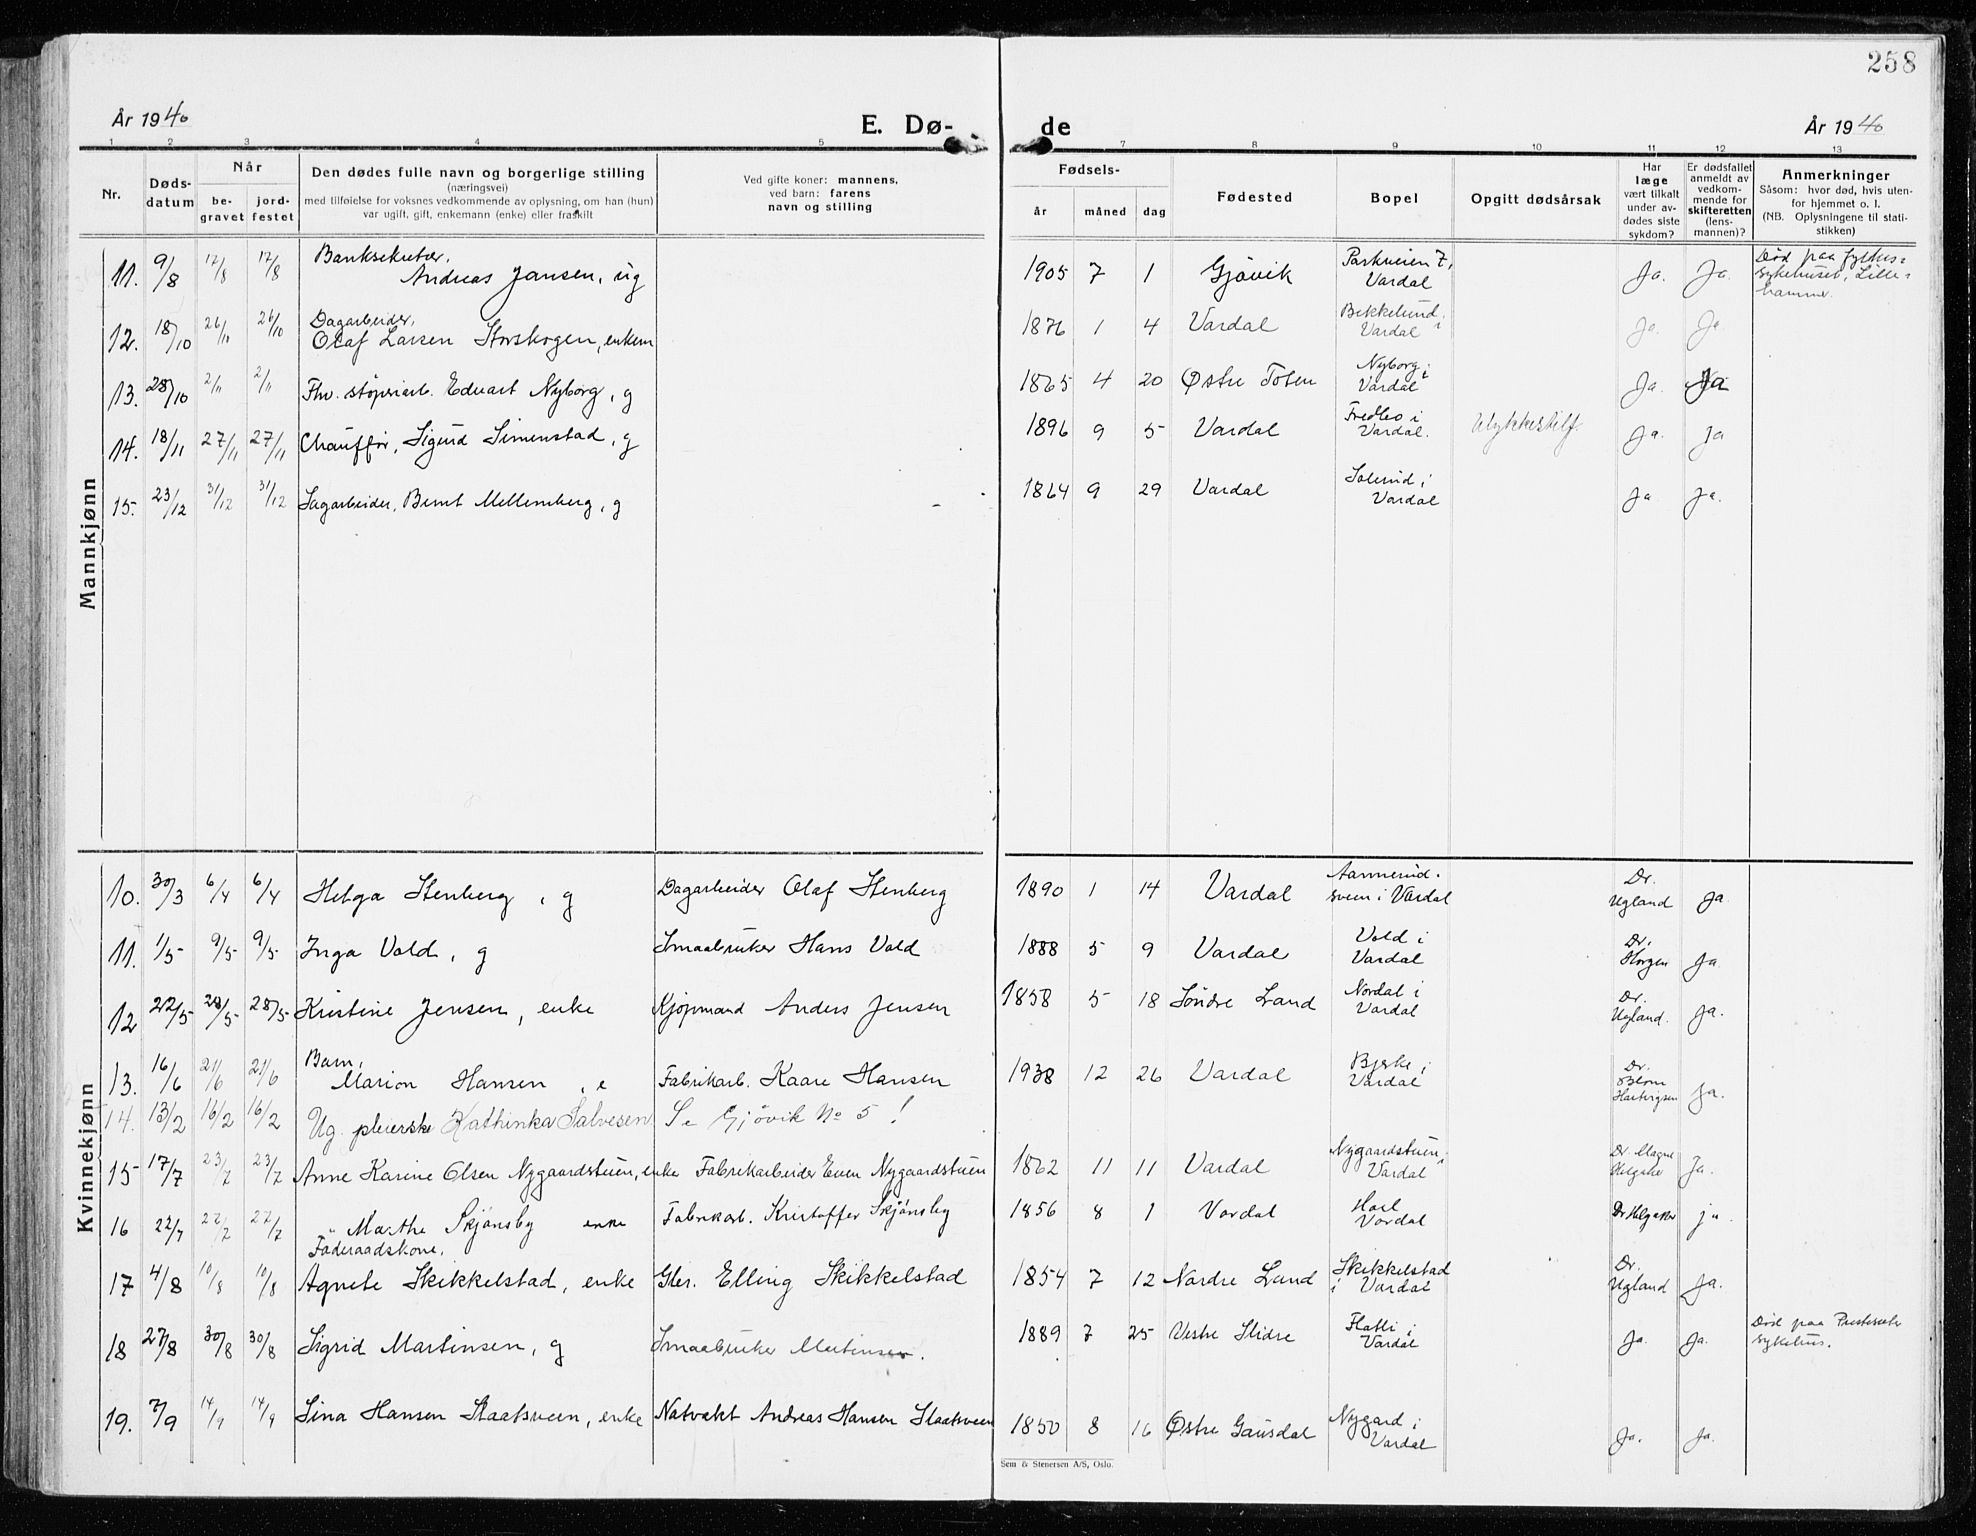 258
År 1940
E. Dø-
de
År 1940
1 2 3 4 5 7 8 9 10 11 12 13
Nr.
Døds-
datum
Når
be-
gravet
jord-
festet
Den dødes fulle navn og borgerlige stilling
(næringsvei)
med tilføielse for voksnes vedkommende av oplysning, om han (hun)
var ugift, gift, enkemann (enke) eller fraskilt
Ved gifte koner: mannens,
ved barn: farens
navn og stilling
Fødsels-
år
måned
dag
Fødested
Bopel
Opgitt dødsårsak
Har
læge
vært tilkalt
under av-
dødes siste
sykdom?
Er dødsfallet
anmeldt av
vedkom-
mende for
skifteretten
(lens-
mannen)?
Anmerkninger
Såsom: hvor død, hvis uten-
for hjemmet o. l.
(NB. Oplysningene til stati-
stikken)
Mannkjønn
11. 9/8 17/8 17/8 Banksekretær, Andreas Jansen, ug 1905 7 1 Gjøvik Parkveien 7, Vardal Ja. Ja. Død paa fylkes= sykehuset, Lille= hammer.
12. 18/10 26/10 26/10 Dagarbeider, Olaf Larsen Storskogen, enkem 1876 1 4 Vardal Bekkelund i Vardal Ja. Ja.
13. 28/10 2/11 2/11 Fhv. støperiarb. Edvart Nyborg, g 1865 4 20 Østre Toten Nyborg i Vardal Ja. Ja
14. 18/11 27/11 27/11 Chauffør, Sigurd Simenstad, g 1896 9 5 Vardal Fredbo i Vardal. Ulykkestilf. Ja. Ja
15. 23/12 31/12 31/12 Sagarbeider, Bernt Mellemberg, g 1864 9 29 Vardal Solerud i Vardal Ja Ja.
Kvinnekjønn
10. 30/3 6/4 6/4 Helga Stenberg, g Dagarbeider Olaf Stenberg 1890 1 14 Vardal Aannerud- sveen i Vardal Dr. Ugland Ja.
11. 1/5 9/5 9/5 Inga Vold, g Smaabruker Hans Vold 1888 5 9 Vardal Vold i Vardal Dr. Horgen Ja.
12 22/5 28/5 28/5 Kristine Jensen, enke Kjøpmand Anders Jensen 1858 5 18 Søndre Land Nordal i Vardal Dr. Ugland. Ja.
13. 16/6 21/6 21/6 Barn, Marion Hansen, e Fabrikarb. Kaare Hansen 1938 12 26 Vardal Bjerke i Vardal Dr. Blom Hartvigsen Ja.
14. 13/2 16/2 16/2 Ug. pleierske Kathinka Salvesen Se Gjøvik No 5!
15 17/7 23/7 23/7 Anne Karine Olsen Nygaardstuen, enke Fabrikarbeider Even Nygaardstuen 1862 11 11 Vardal Nygaardstuen, Vardal Dr. Magne Helgaker Ja.
16 22/7 27/7 27/7 " Marthe Skjønsby enke Fabrikarb. Kristoffer Skjønsby 1856 8 1 Vardal Hoel Vardal Dr Helgaker ja.
17 4/8 10/8 10/8 Føderaadskone, Agnete Skikkelstad, enke Gbr. Elling Skikkelstad 1854 7 12 Nordre Land Skikkelstad i Vardal Dr. Ugland Ja.
18 27/8 30/8 30/8 Sigrid Martinsen, g Smaabruker Martinsen. 1889 7 25 Vestre Slidre Flatli i Vardal Ja. Ja. Død paa Presteseter sykehus.
19. 7/9 14/9 14/9 Sina Hansen Staatsveen, enke Natvakt Andreas Hansen Staatsveen 1850 8 16 Østre Gausdal Nygard i Vardal Ja. Ja.
Sem & Stenersen A/S, Oslo.